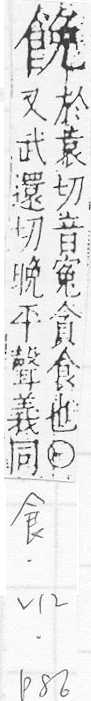 於袁切音寃貪食也㊁
又武還切晚平聲義同
食 · V12 · P86